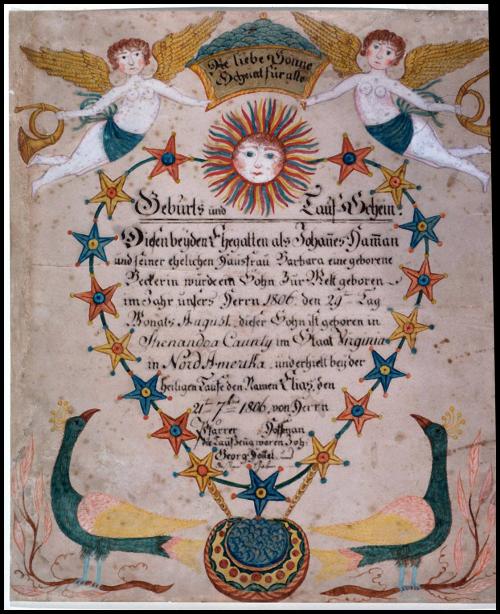 Die liebe Sonne
Scheint für alle
Geburts und Tauf Schein.
Diesen beyden Ehegatten als Johañes Haman
und seiner ehelichen Hausfrau Barbara eine geborene
Beckerin wurde ein Sohn Zur Welt geboren
im Jahr unsers Herrn 1806 den 29ten Tag
Monats August. dieser Sohn ist geboren in
Shenandoa Caunty im Staat Virginia
in Nord Amerika, und erhielt bey der
heiligen Taufe den Namen Elias, den
21ten 7ber 1806, von Herrn
Pfarrer Hoffman
die Taufzeug waren Joh.
Georg und